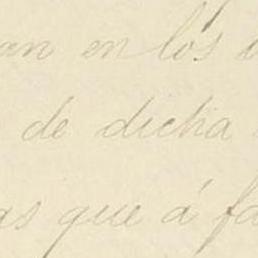 an en los
de dicha
as que á fa